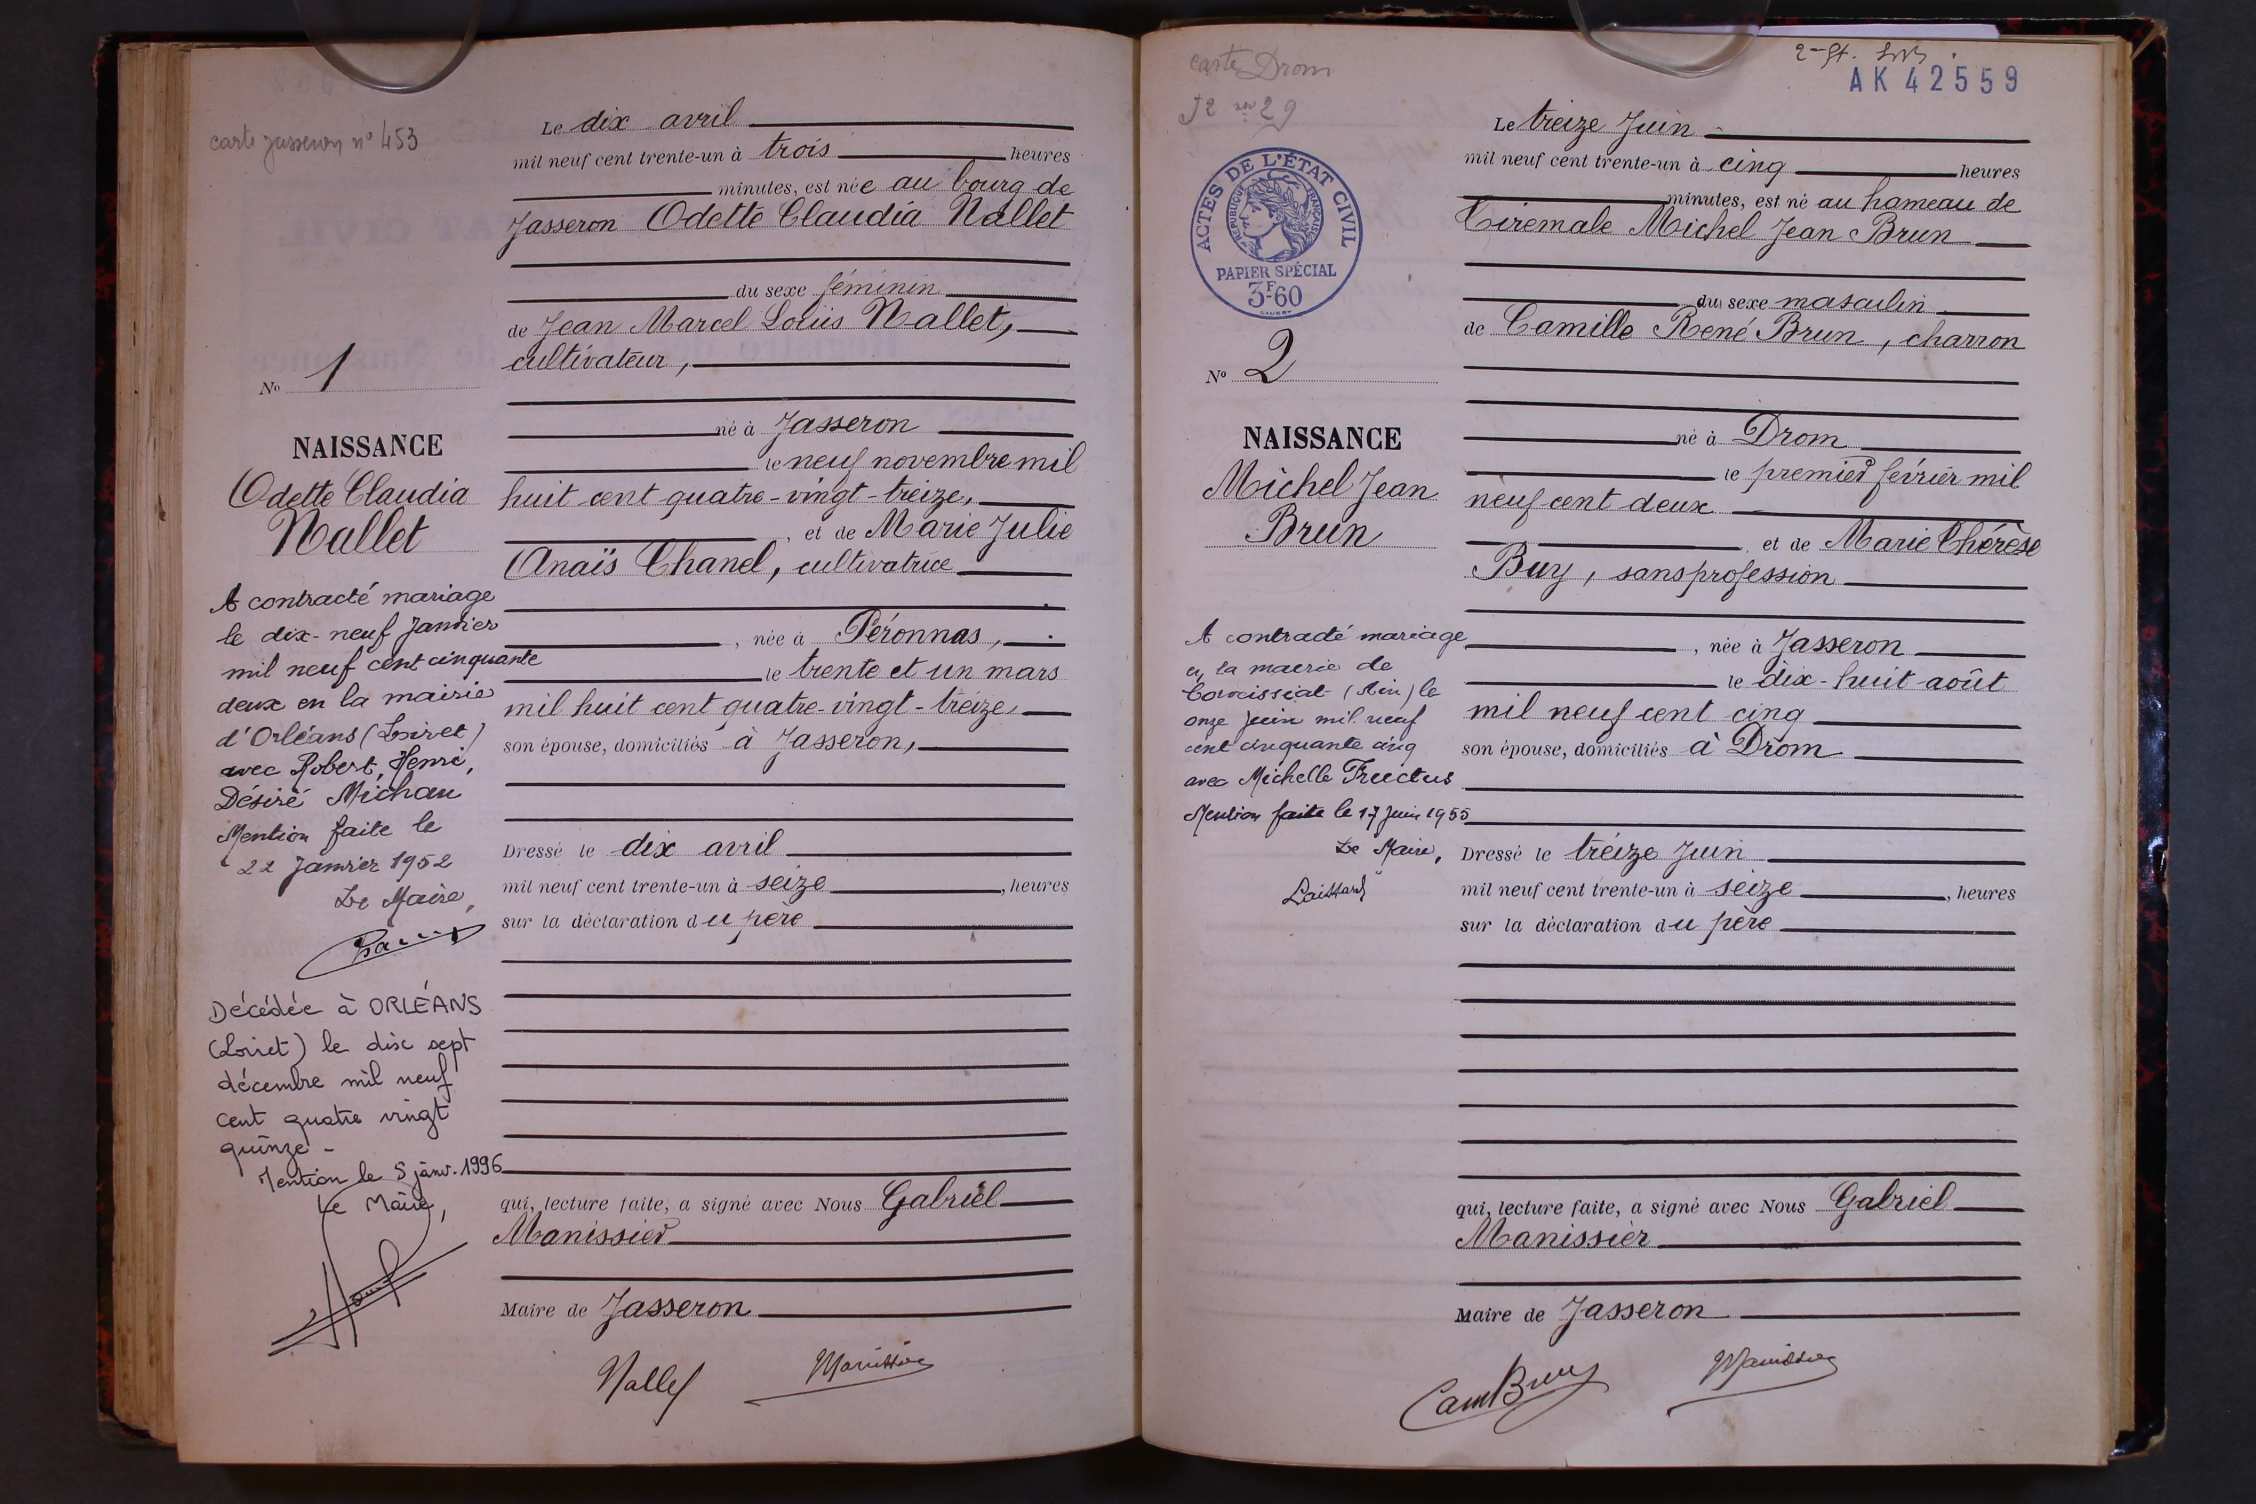 carte Jasseron n° 453
Le dix avril
mil neuf cent trente-un à trois heures
minutes, est née au bourg de
Jasseron Odette Claudia Nallet
du sexe féminin
de Jean Marcel Louis Nallet,
cultivateur,
né à Jasseron
le neuf novembre mil
huit cent quatre-vingt-treize,
, et de Marie Julie
Anaïs Chanel, cultivatrice
, née à Péronnas,
le trente et un mars
mil huit cent quatre-vingt-treize,
son épouse, domiciliés à Jasseron,
Dressé le dix avril
mil neuf cent trente-un à seize, heures
sur la déclaration du père
qui, lecture faite, a signé avec Nous Gabriel
Manissier
Maire de Jasseron
Nallet Manissier
N° 1
NAISSANCE
Odette Claudia
Nallet
A contracté mariage
le dix-neuf Janvier
mil neuf cent cinquante
deux en la mairie
d'Orléans (Loiret)
avec Robert, Henri,
Désiré Michau
Mention faite le
22 Janvier 1952
Le Maire,
Décédée à ORLÉANS
(Loiret) le dix sept
décembre mil neuf
cent quatre vingt
quinze -
Mention le 5 janv. 1996
Le Maire,
carte Drom
J2 29
AK 42559
ACTES DE L'ÉTAT CIVIL
RÉPUBLIQUE FRANÇAISE
PAPIER SPÉCIAL
3F.60
Le treize Juin
mil neuf cent trente-un à cinq heures
minutes, est né au hameau de
Tiremale Michel Jean Brun
du sexe masculin
de Camille René Brun, charron
né à Drom
le premier février mil
neuf cent deux
et de Marie Thérèse
Buy, sans profession
, née à Jasseron
le dix-huit août
mil neuf cent cinq
son épouse, domiciliés à Drom
Dressé le treize Juin
mil neuf cent trente-un à seize, heures
sur la déclaration du père
qui, lecture faite, a signé avec Nous Gabriel
Manissier
Maire de Jasseron
Cam Brun Manissier
N° 2
NAISSANCE
Michel Jean
Brun
A contracté mariage
en la mairie de
(Ain) le
onze juin mil neuf
cent cinquante cinq
avec Michelle Fructus
Mention faite le 17 Juin 1955
Le Maire,